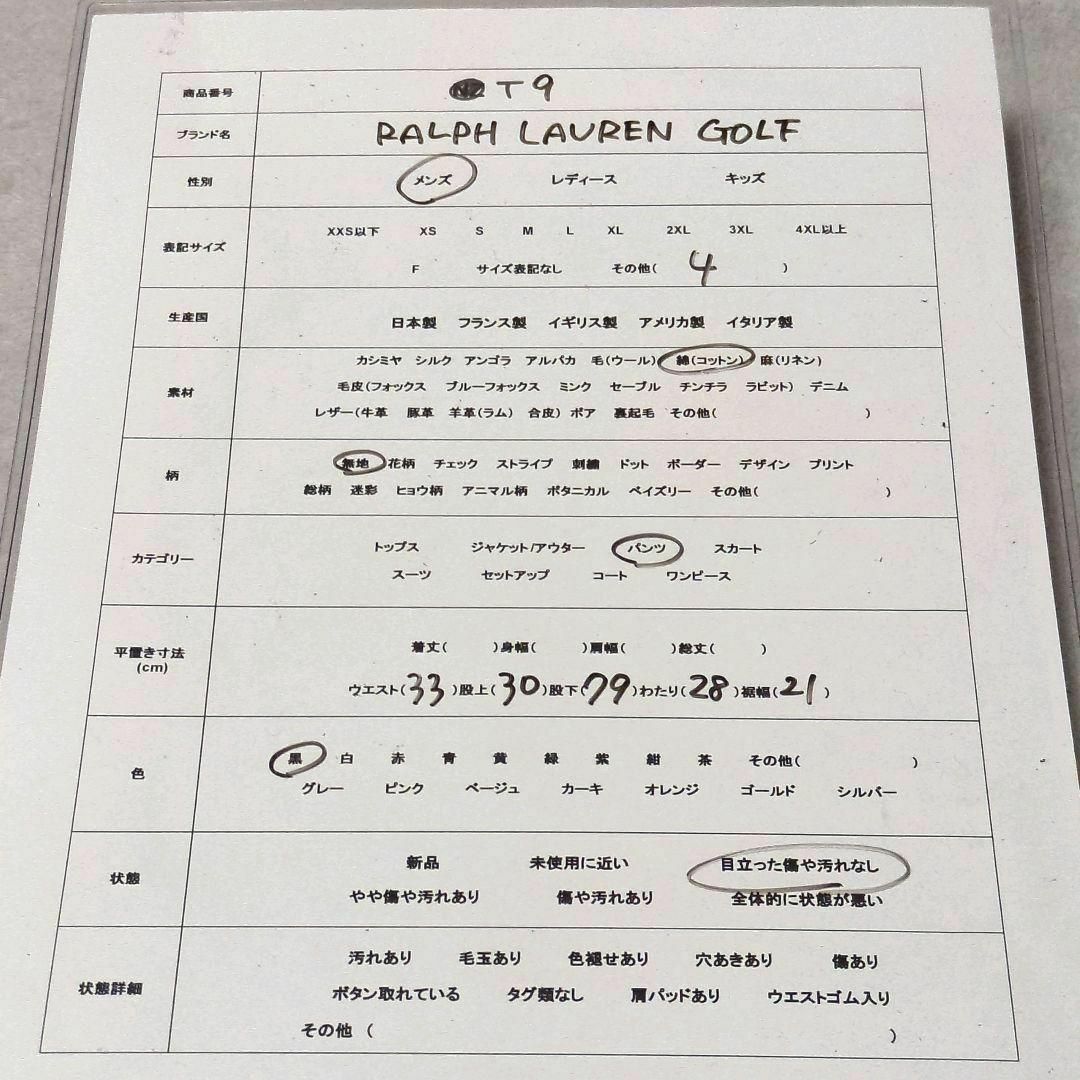 商品番号 T9
ブランド名 RALPH LAUREN GOLF
性別 メンズ レディース キッズ
XXS以下 XS S M L XL 2XL 3XL 4XL以上
表記サイズ
F サイズ表記なし その他( 4 )
生産国 日本製 フランス製 イギリス製 アメリカ製 イタリア製
カシミヤ シルク アンゴラ アルパカ 毛(ウール) 綿(コットン) 麻(リネン)
素材 毛皮(フォックス ブルーフォックス ミンク セーブル チンチラ ラビット) デニム
レザー(牛革 豚革 羊革(ラム) 合皮) ボア 裏起毛 その他( )
無地 花柄 チェック ストライプ 刺繍 ドット ボーダー デザイン プリント
柄
総柄 迷彩 ヒョウ柄 アニマル柄 ボタニカル ペイズリー その他( )
トップス ジャケット/アウター パンツ スカート
カテゴリー
スーツ セットアップ コート ワンピース
平置き寸法 着丈( )身幅( )肩幅( )総丈( )
(cm) ウエスト(33)股上(30)股下(79)わたり(28)裾幅(21)
黒 白 赤 青 黄 緑 紫 紺 茶 その他( )
色
グレー ピンク ベージュ カーキ オレンジ ゴールド シルバー
新品 未使用に近い 目立った傷や汚れなし
状態
やや傷や汚れあり 傷や汚れあり 全体的に状態が悪い
汚れあり 毛玉あり 色褪せあり 穴あきあり 傷あり
状態詳細 ボタン取れている タグ類なし 肩パッドあり ウエストゴム入り
その他 ( )